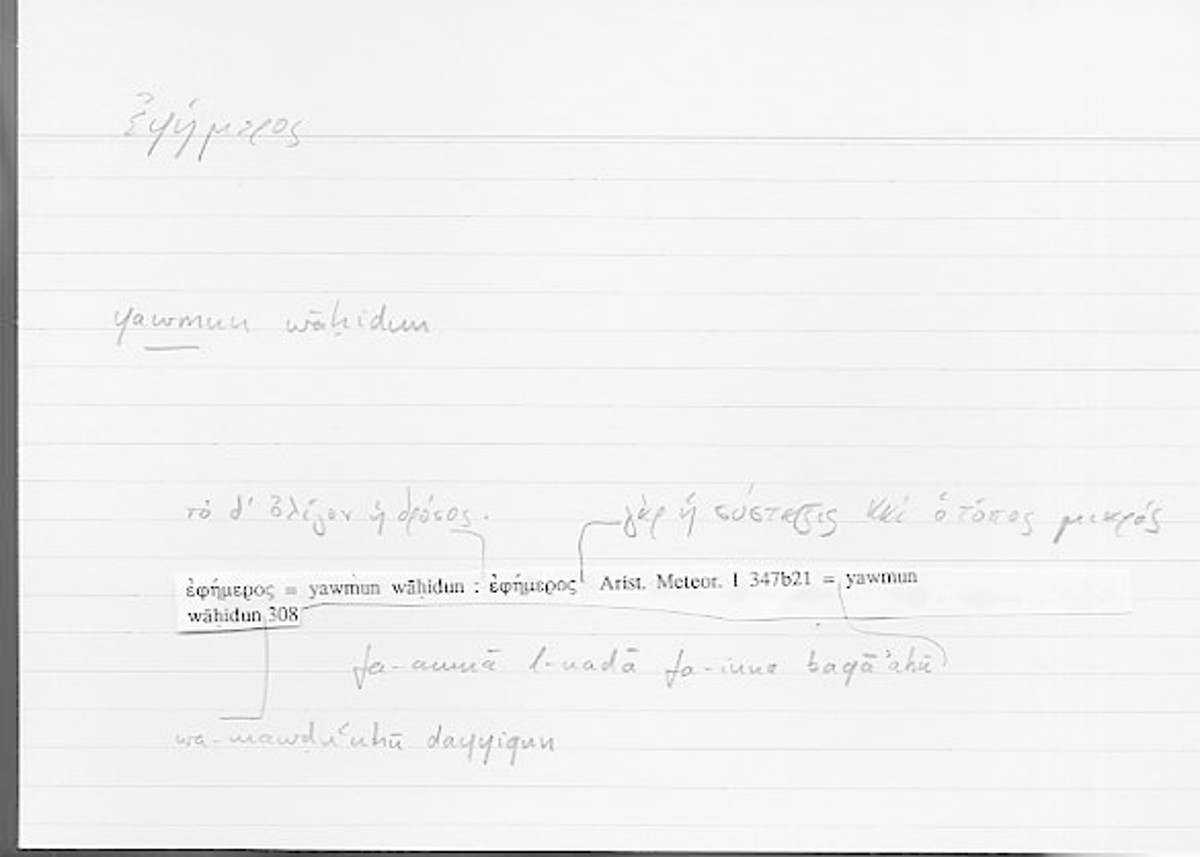 ἐφήμερος
yawmun wāḥidun
τὸ δ' ὀλίγον ἡ δρόσος · γὰρ ἡ σύστασις καὶ ὁ τόπος μικρός
ἐφήμερος = yawmun wāḥidun : ἐφήμερος Arist. Meteor. I 347b21 = yawmun
wāḥidun 308
fa-ammā l-nadā fa-inna baqāʾahū
wa-mawḍiʿuhū ḍayyiqun